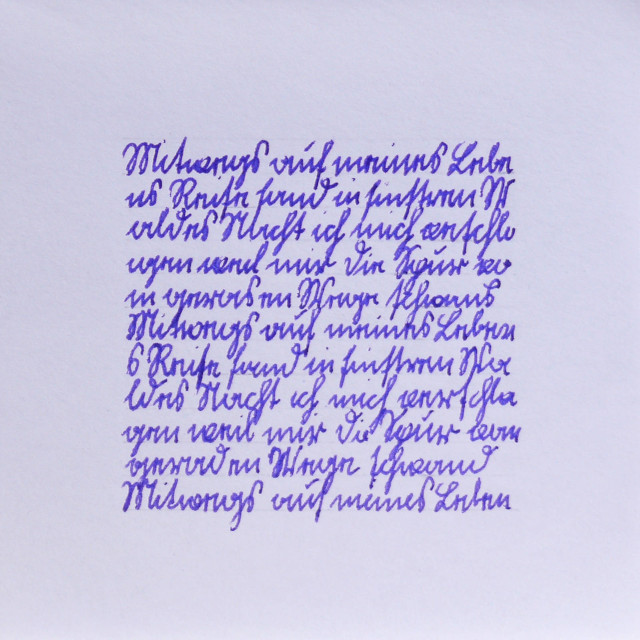 Mitwegs auf meines Lebe
ns Reise fand in finstren W
aldes Nacht ich mich verschla
agen weil mir die Spur vo
m geraden Wege schwand
Mitwegs auf meines Leben
s Reise fand in finstren Wa
ldes Nacht ich mich verschla
gen weil mir die Spur vom
geraden Wege schwand
Mitwegs auf meines Leben